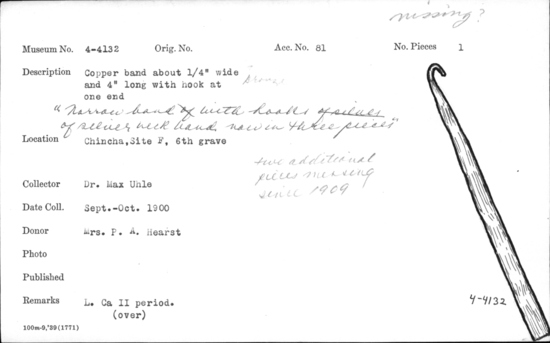 missing?
Museum No. 4-4132 Orig. No. Acc. No. 81 No. Pieces 1
Description Copper band about 1/4" wide
and 4" long with hook at Bronze
one end
"Narrow band of with hooks of silver
of silver neck band now in three pieces"
Location Chincha,Site F, 6th grave
two additional
pieces missing
since 1909
Collector Dr. Max Uhle
Date Coll. Sept.-Oct. 1900
Donor Mrs. P. A. Hearst
Photo
Published
Remarks L. Ca II period.
(over)
4-4132
100m-9,'39(1771)